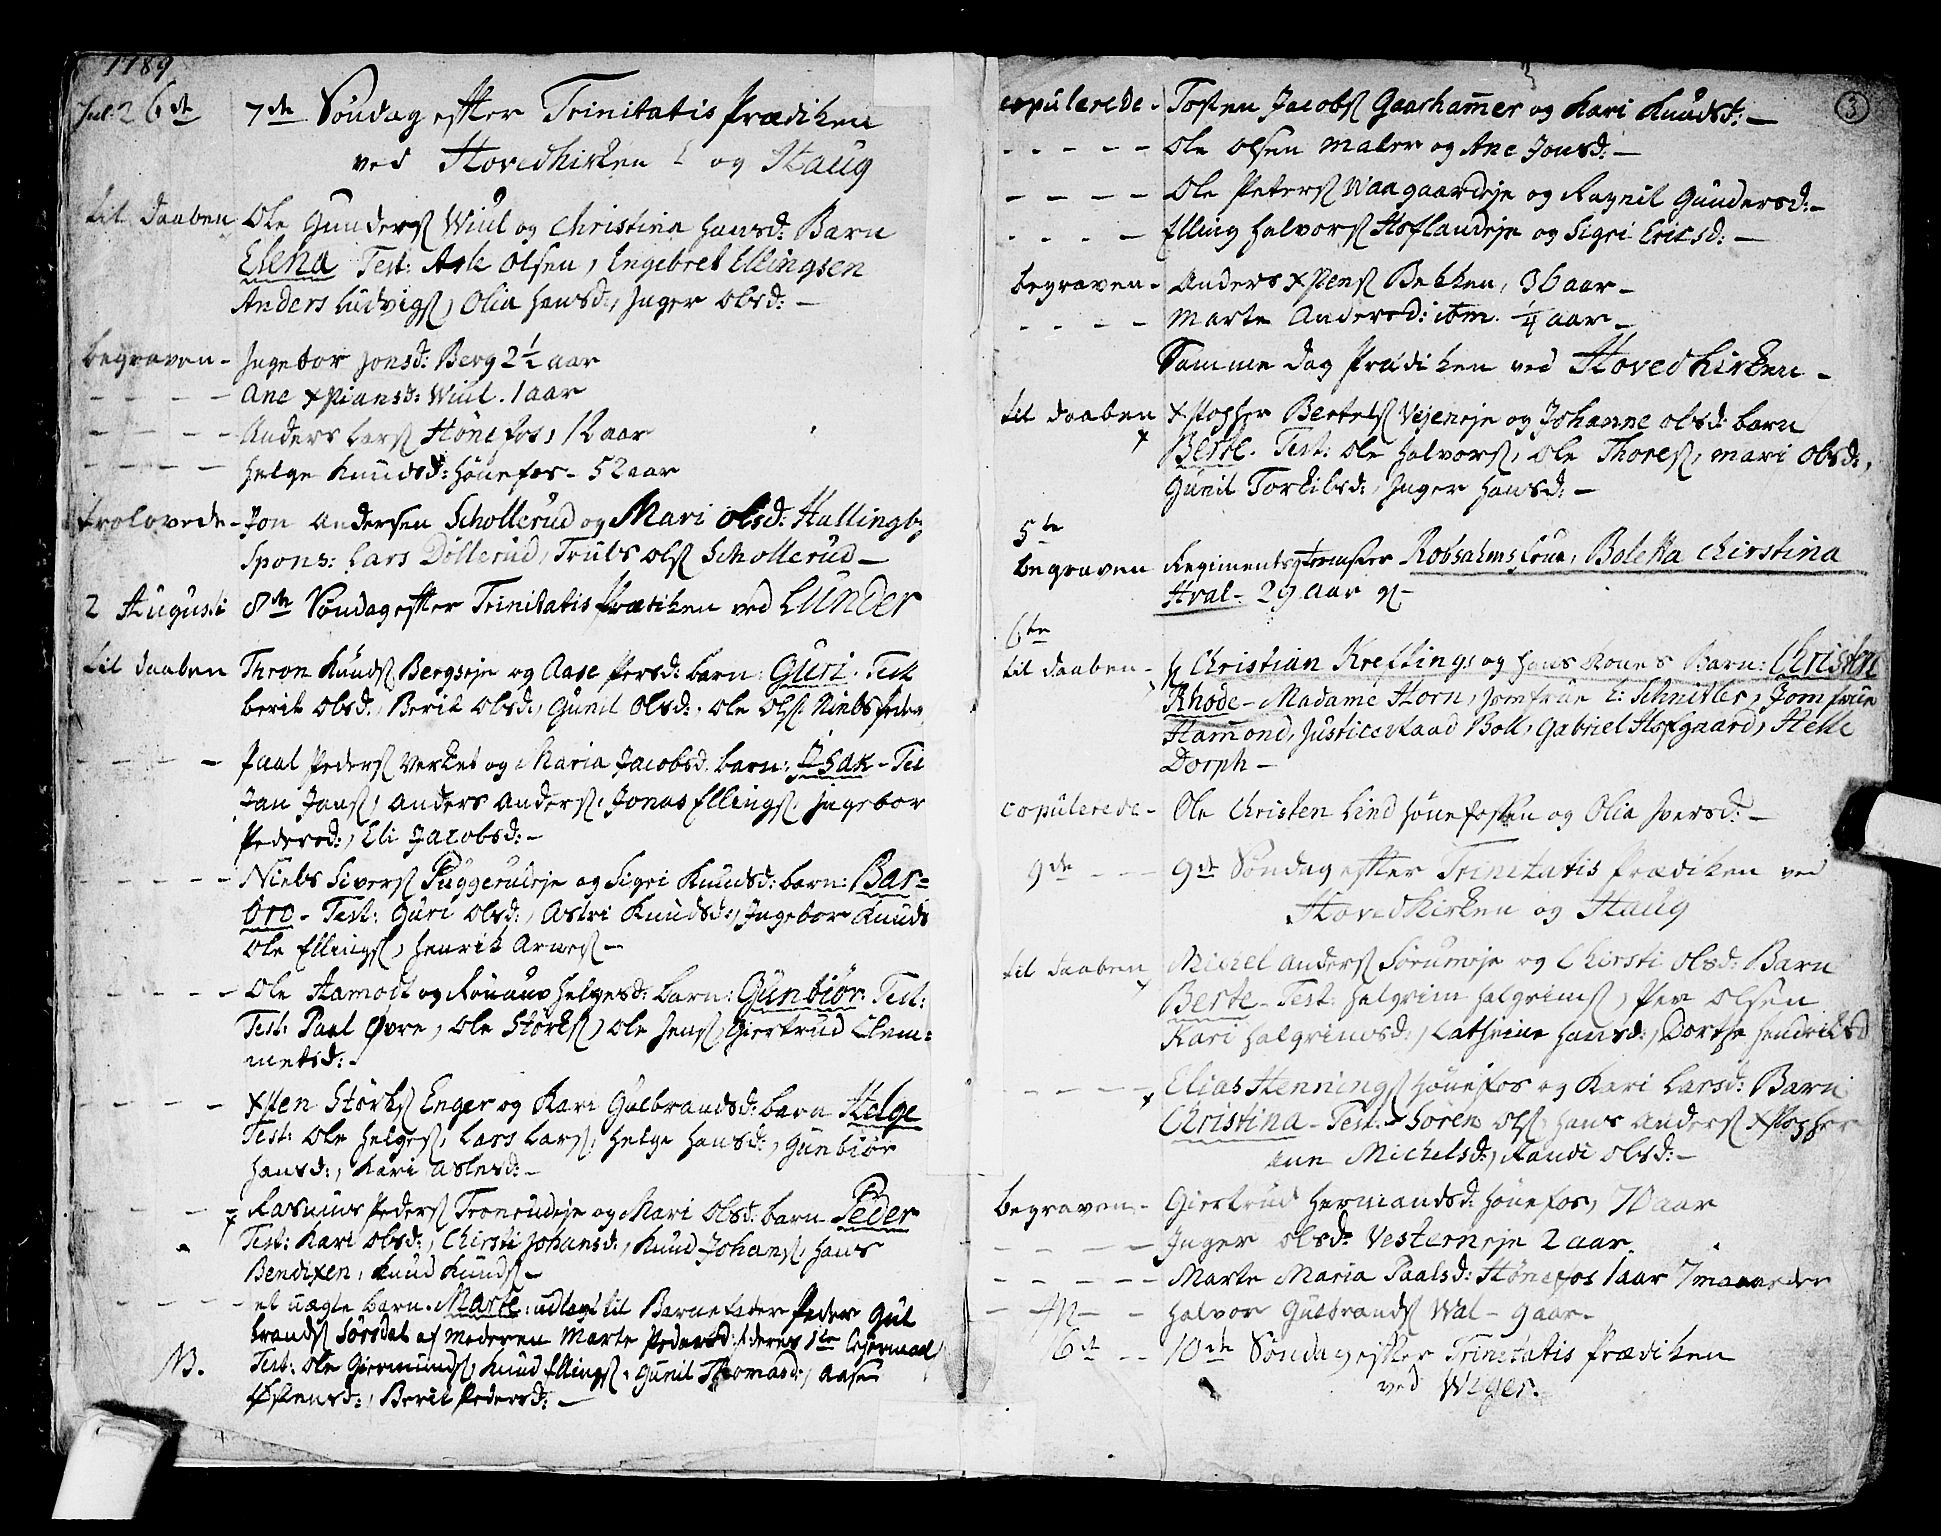 1789
Jul: 26de 7de Søndag efter Trinitatis Prædiken
ved Hovedkirken og Haug
til daaben Ole Gunders Wiul og Christine Hansd: Barn
Elena Test: Ask Olsen, Engebret Ellingsen
Anders Ludvigs, Olia Hansd:, Inger Olsd: -
begraven - Ingebor Jonsd: Berg 2½ aar
- - - - Ane Xpiansd: Wiul. 1 aar
- - - - Anders Lars Hønefos, 12 aar
- - - - Helge Knudsd: Hønefos - 52 aar
trolovede - Jon Andersen Schollerud og Mari Olsd: Hallingby
Spons: Lars Døllerud, Truls Ols Schollerud -
2 Augusti 8de Søndag efter Trinitatis Prædiken ved Lunder
til daaben Thron Knuds Bergseje og Aase Persd: barn: Guri. Test
Berit Olsd:, Berit Olsd:, Gunil Olsd:, Ole Ols: Niels Peders
- - - - Paal Peders Verket og Maria Jacobsd. barn: Isak - Tes
Jan Jans, Anders Anders, Jonas Ellings, Ingebor
Pedersd:, Eli Jacobsd: -
- - - - Niels Sivers Puggerudeje og Sigri Knudsd: barn: Bar=
bro - Test: Guri Olsd:, Astri Knudsd:, Ingebor Knuds
Ole Ellings, Henrik Arnes -
- - - - Ole Hamost og Rønaug Helgesd: barn: Gunbiør. Test:
Test: Paal Øvre, Ole Størks, Ole Jens, Giertrud Clem=
metsd: -
- - - - Xsten Størks Enger og Kari Gulbrandsd: barn Helge
Test: Ole Helges, Lars Lars, Helge Hansd:, Gunbiør
Hansd:, Kari Aslesd: -
- - - - Rasmus Peders Tronrudeje og Mari Olsd: barn Peder
Test: Kari Olsd:, Chirsti Johansd:, Knud Johans, Hans
Bendixen, Knud Knuds -
- - - - et uægte barn. Marte, udlagt til Barnefader Peder Gul
brands Sørsdal af Moderen Marte Pedersd: deres 1te Lejermaal
NB. Test: Ole Giermunds, Knud Ellings, Gunil Thomasd:, Aase
Østensd:, Berit Pedersd: -
3
copulerede - Tosten Jacobs Gaarhammer og Kari Knudsd: -
- - - - - Ole Olsen Maler og Ane Jonsd: -
- - - - Ole Peters Waagaardeje og Ragnil Gundersd: -
- - - - Elling Halvors Hoflandeje og Sigri Ericsd: -
begraven - Anders Xstens Bekken, 36 aar -
- - - - Marte Andersd: ibm. ¼ aar -
Samme Dag Prædiken ved Hovedkirken -
til daaben Xstopher Bertels Vejeneje og Johanne Olsd: barn
Berte. Test: Ole Halvors, Ole Thores, Mari Olsd:,
Gunil Torkilsd:, Inger Hansd: -
5te
begraven Regiments Robsahms frue, Boletta Chirstina
Hval - 29 aar g -
6te
til daaben - Christian Kreftings og Hans Kones Barn: Christine
Rhode - Madame Horn, Jomfrue L: Schnitler, Jomfrue
Hammond, Justice Raad Boll, Gabriel Hofgaard, Helle
Dorph -
copulerede - Ole Christen Lind Hønefossen og Olia Iversd: -
9de - - - 9de Søndag efter Trinitatis Prædiken ved
Hovedkirken og Haug
til daaben Michel Anders Sørumeje og Chirsti Olsd: Barn
Berte - Test: Halgrim Halgrims, Per Olsen
Kari Halgrimsd:, Cathrine Hansd:, Dorthe Hendriksd
- - - - Elias Hennings Hønefos og Kari Larsd: Barn
Christina - Test. - Søren Ols, Hans Anders Xstopher
Ane Michelsd:, Randi Olsd: -
begraven - Giertrud Hermandsd: Hønefos, 70 aar
- - - - Inger Olsd: Vesterneje 2 aar.
- - - - Marte Maria Paalsd: Hønefos 1 aar 7 maaneder
- - - Halvor Gulbrands Wal - 9 aar -
16de - - 10de Søndag efter Trinitatis Prædiken
ved Weger.